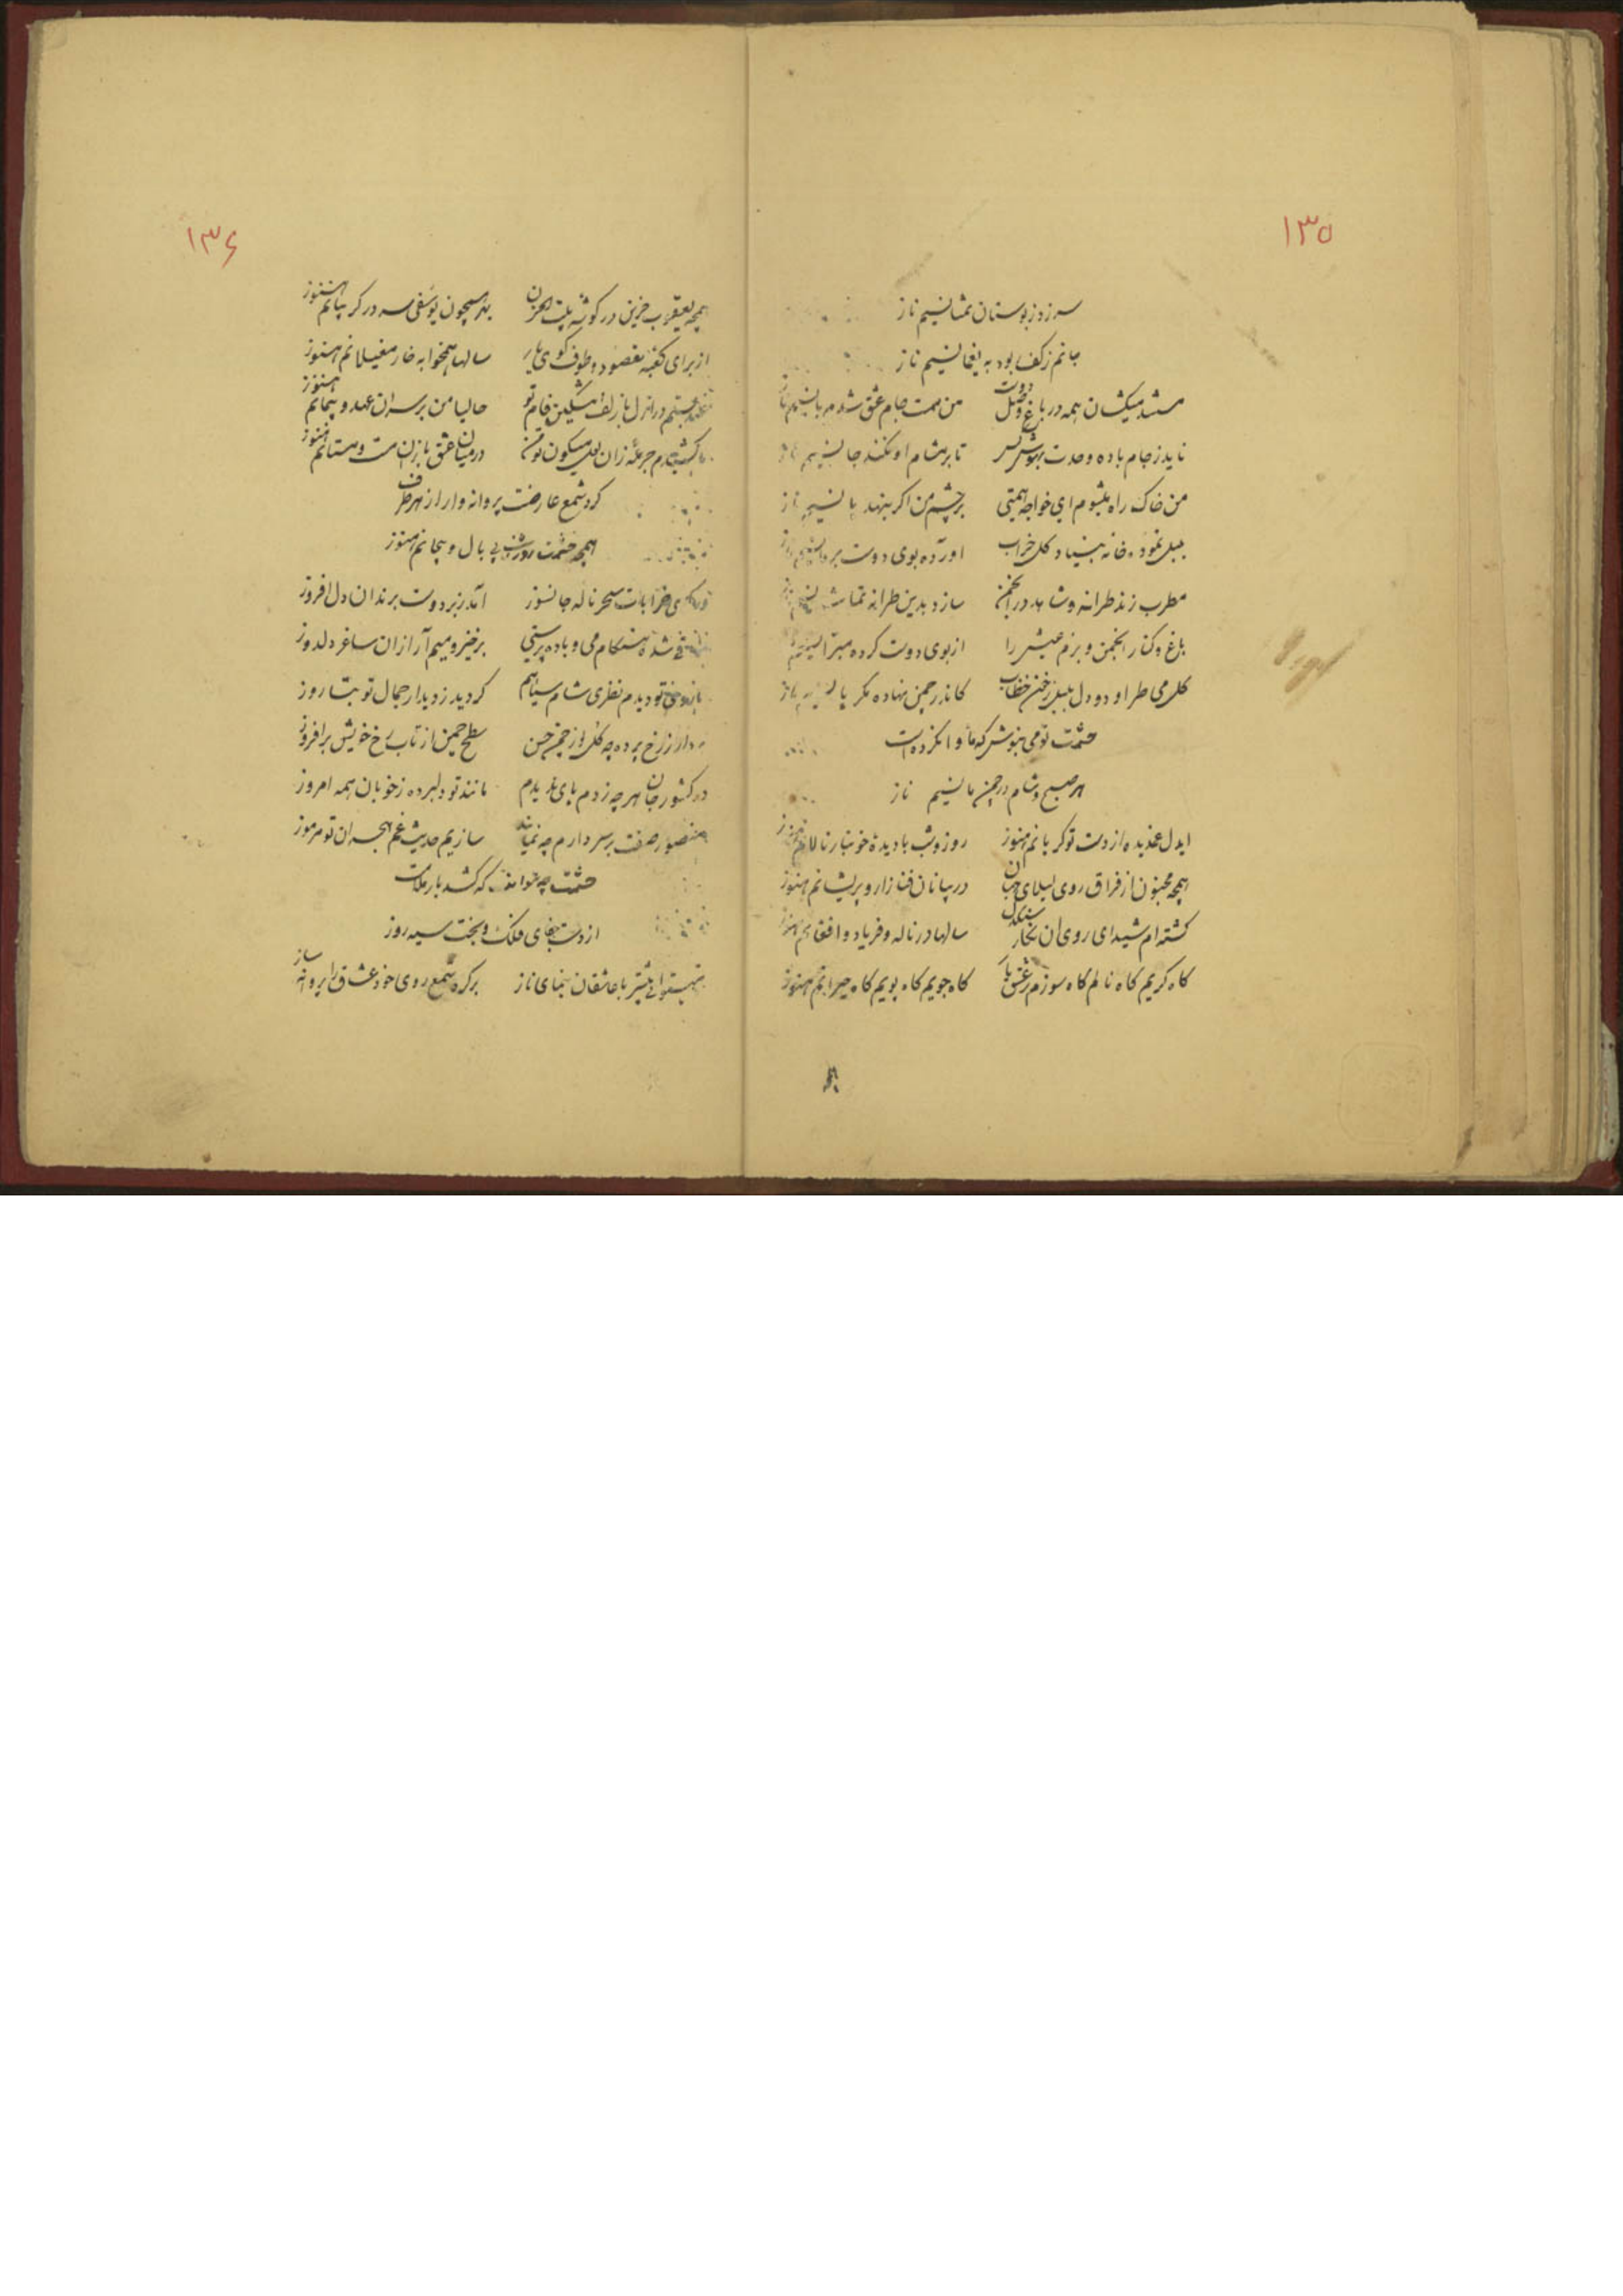 ١٣٥
سر زد ز بوستان تمشا نسیم ناز
جانم ز کف بود به یغما نسیم ناز
مستند میکشان همه در باغ وصل دوست من مست جام عشق شدم با نسیم ناز
ناید ز جام باده وحدت بهوش کس تا بر مشام او نکند جا نسیم ناز
من خاک راه میشوم ای خواجه همتی بر چشم من اگر بنهد پا نسیم ناز
بلبل نموده خانه بنیاد کل خراب اورده بوی دوست نسیم ناز
مطرب زند طرانه و شاهد در انجمن سازد بدین طرانه تماشا نسیم ناز
باغ و کنار انجمن و بزم عیش را از بوی دوست کرده مبرا نسیم ناز
کلر می طراود و دل بلبل خطاب کاندر چمن نهاده مکر پا نسیم ناز
حشمت تو می بنوش که ما وا نکرده است
هر صبح و شام در چمن ما نسیم ناز
ایدل غمدیده از دست تو کریانم هنوز روز و شب با دیده خونبار نالانم هنوز
همچه مجنون از فراق روی لیلای جهان در بیابان فنا زار و پریشانم هنوز
کشته ام شیدای روی ان نکار سنکدل سالها در ناله و فریاد و افغانم هنوز
کاه کریم کاه نالم کاه سوزم ز عشق یار کاه جویم کاه پویم کاه حیرانم هنوز
١٣۶
همچه یعقوب حزین در کوشه بیت الحزن بهر همچون یوسفی سر در کریبانم هنوز
از برای کعبه مقصود و طوف کوی یار سالها همخوابه خار مغیلانم هنوز
عهد بستم در ازل با زلف مشکین فام تو حالیا من بر سر ان عهد و پیمانم هنوز
جرعه زان لعل میکون تو من در میان عشق بازان مست و مستانم هنوز
کرد شمع عارضت پروانه وار از هر طرف
همچه حشمت روز و شب بی بال و بیجانم هنوز
خرابات سحر ناله جانسوز آمد ز بر دوست برندان دل افروز
شده هنکام می و باده پرستی برخیز و میم آر از ان ساغر دلدوز
تو دیدم نظری شام سیاهم کردید ز دیدار جمال تو بتا روز
بردار ز رخ پرده چه کل از چمن حسن سطح چمن از تاب رخ خویش برافروز
در کشور جان هر چه زدم پای ندیدم مانند تو دلبرده ز خوبان همه امروز
منصور صفت بر سر دارم چه نمایند سازیم حدیث غم هجران تو مرموز
حشمت چه تواند که کشد بار ملامت
از دست جفای فلک و بخت سیه روز
با عاشقان بنمای ناز بر کرد شمع روی خود عشاق را پروانه ساز